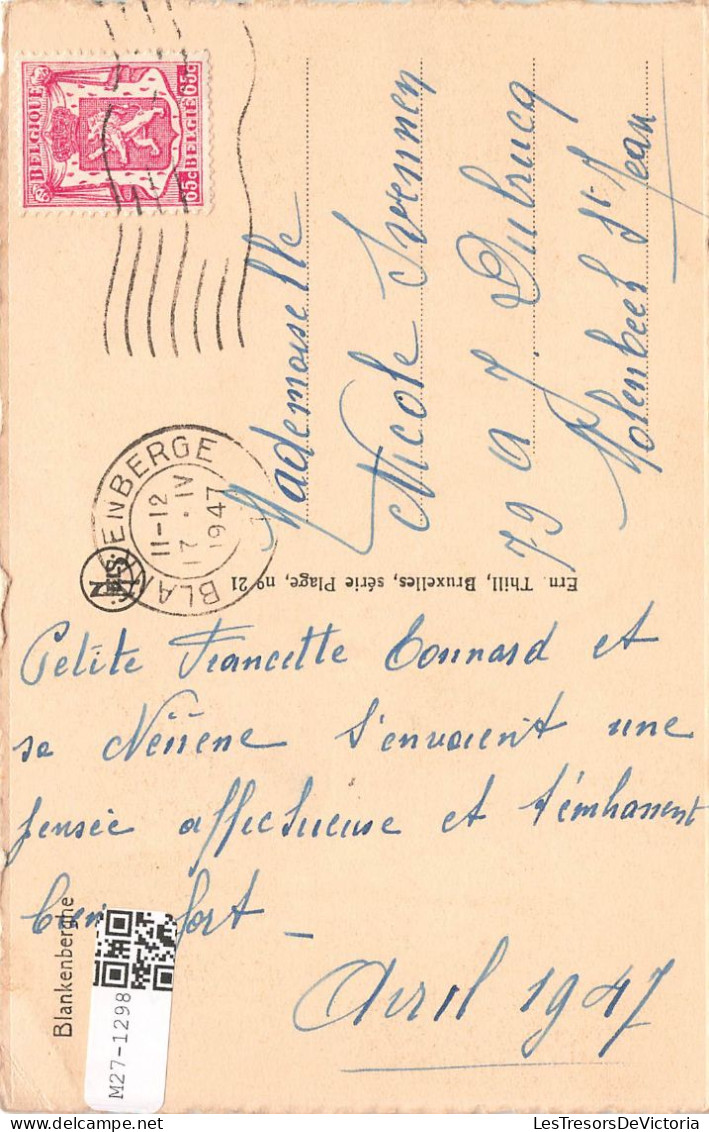 BELGIQUE 65c
65c BELGIE
BLANKENBERGE
11-12
17 · IV
1947
Mademoiselle
Nicole
79 a J. Dubrucq
Molenbeek St-Jean
NELS
Ern. Thill, Bruxelles, série Plage, nº 21
Petite Francette Connard et
sa s'envoient une
pensée affectueuse et t'embrassent
bien fort _
Avril 1947
Blankenberghe
M27-1298
LesTresorsDeVictoria
LesTresorsDeVictoria.com